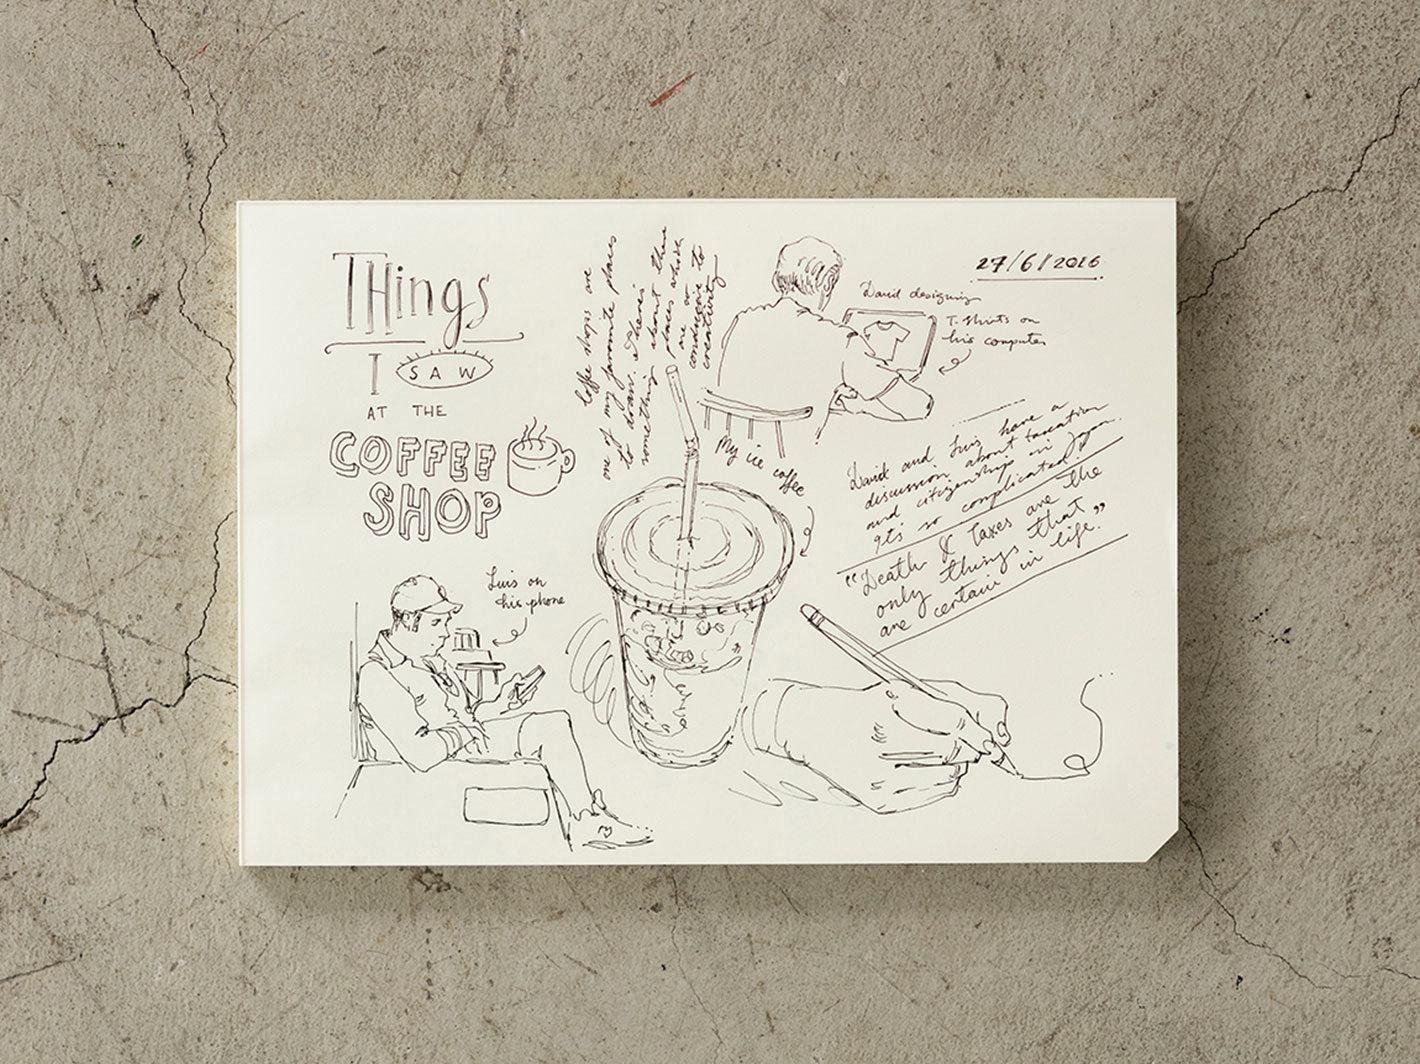 THings
I SAW
AT THE
COFFEE
SHOP
Coffee shops are
one of my favorite places
to draw. There's
something about these
places which
are so
conducive to
creativity
27/6/2016
David designing
T-Shirts on
his computer
My ice coffee
David and Luis have a
discussion about taxation
and citizenship in Japan
It's so complicated!
"Death & Taxes are the
only things that
are certain in life."
Luis on
his phone